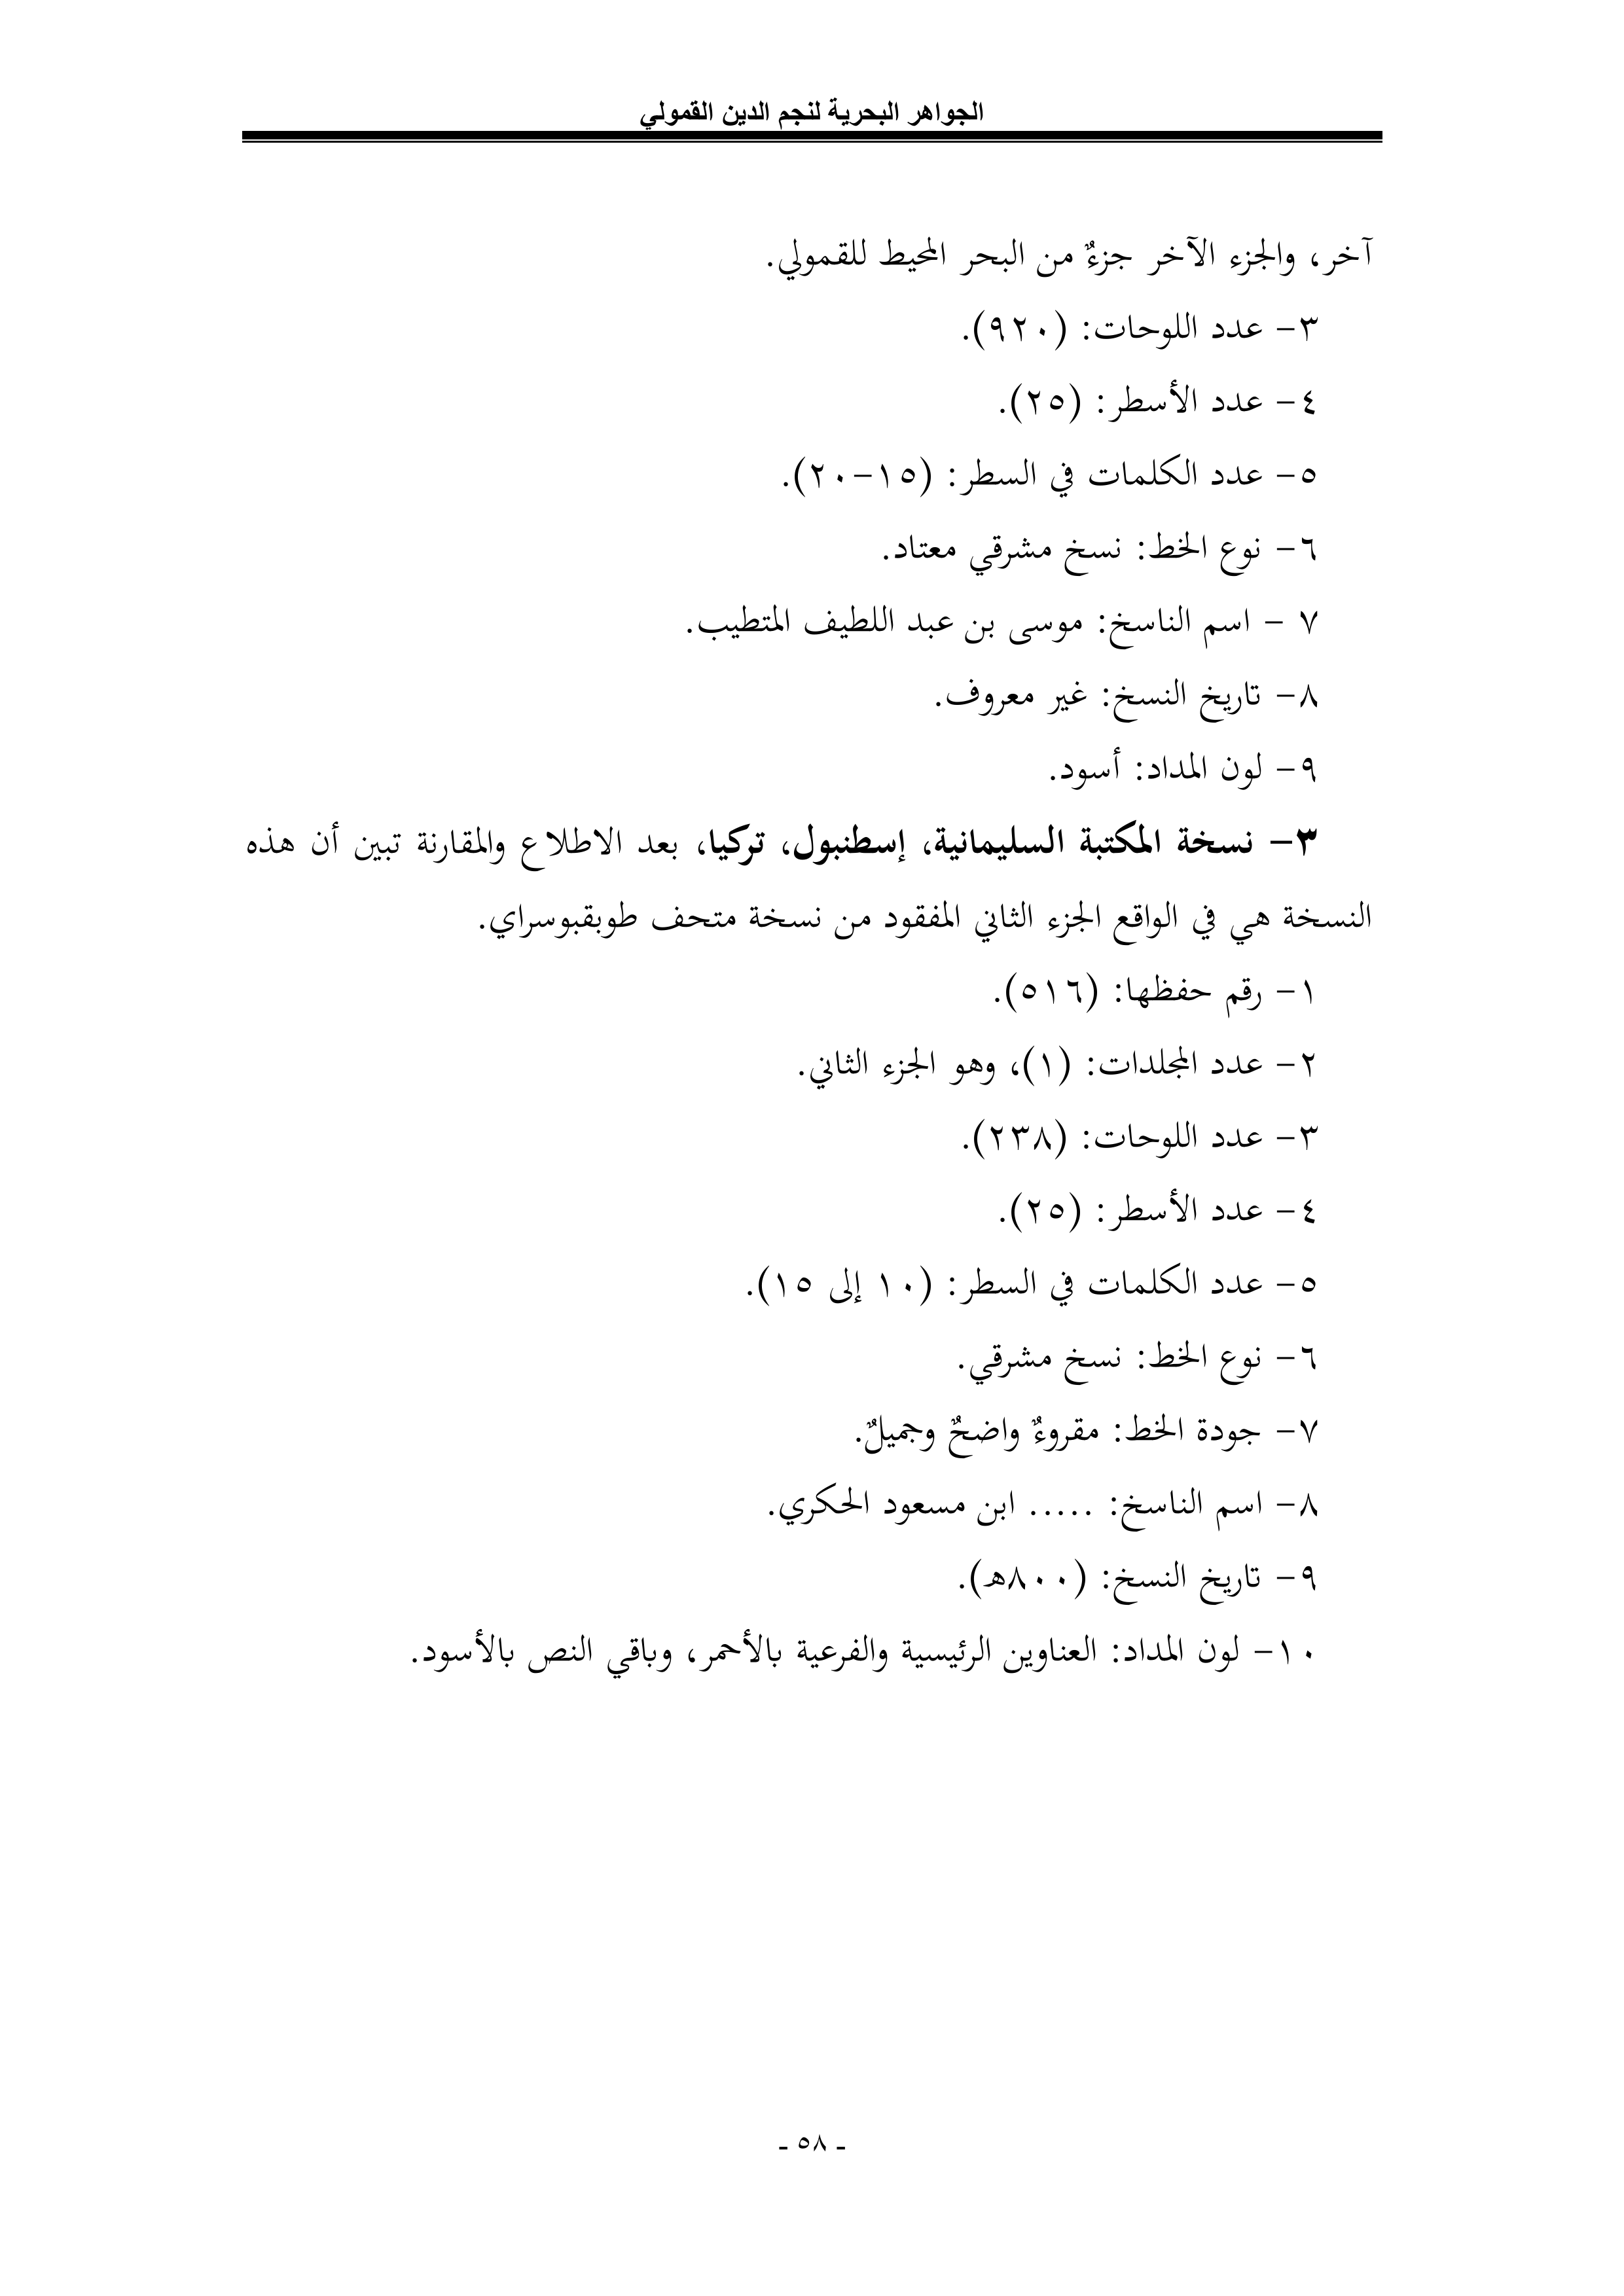 الجواهر البحرية لنجم الدين القمولي
آخر، والجزء الآخر جزءٌ من البحر المحيط للقمولي.
٣- عدد اللوحات: (٩٢٠).
٤- عدد الأسطر: (٢٥).
٥- عدد الكلمات في السطر: (١٥-٢٠).
٦- نوع الخط: نسخ مشرقي معتاد.
٧ - اسم الناسخ: موسى بن عبد اللطيف المتطيب.
٨- تاريخ النسخ: غير معروف.
٩- لون المداد: أسود.
٣- نسخة المكتبة السليمانية، إسطنبول، تركيا، بعد الاطلاع والمقارنة تبين أن هذه
النسخة هي في الواقع الجزء الثاني المفقود من نسخة متحف طوبقبوسراي.
١- رقم حفظها: (٥١٦).
٢- عدد المجلدات: (١)، وهو الجزء الثاني.
٣- عدد اللوحات: (٢٣٨).
٤- عدد الأسطر: (٢٥).
٥- عدد الكلمات في السطر: (١٠ إلى ١٥).
٦- نوع الخط: نسخ مشرقي.
٧- جودة الخط: مقروءٌ واضحٌ وجميلٌ.
٨- اسم الناسخ: ..... ابن مسعود الحكري.
٩- تاريخ النسخ: (٨٠٠هـ).
١٠- لون المداد: العناوين الرئيسية والفرعية بالأحمر، وباقي النص بالأسود.
- ٥٨ -